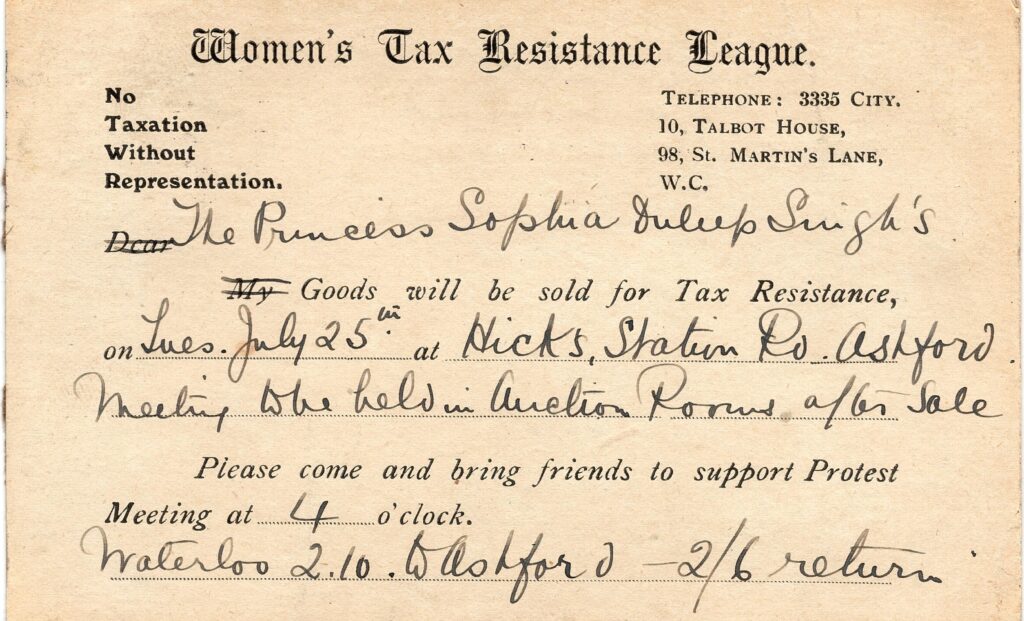 Women's Tax Resistance League.
No
Taxation
Without
Representation.
TELEPHONE: 3335 CITY.
10, TALBOT HOUSE,
98, St. MARTIN'S LANE,
W.C.
Dear The Princess Sophia Duleep Singh's
My Goods will be sold for Tax Resistance,
on Tues. July 25th at Hicks, Station Rd. Ashford.
Meeting to be held in Auction Rooms after Sale
Please come and bring friends to support Protest
Meeting at 4 o'clock.
Waterloo 2.10. to Ashford - 2/6 return